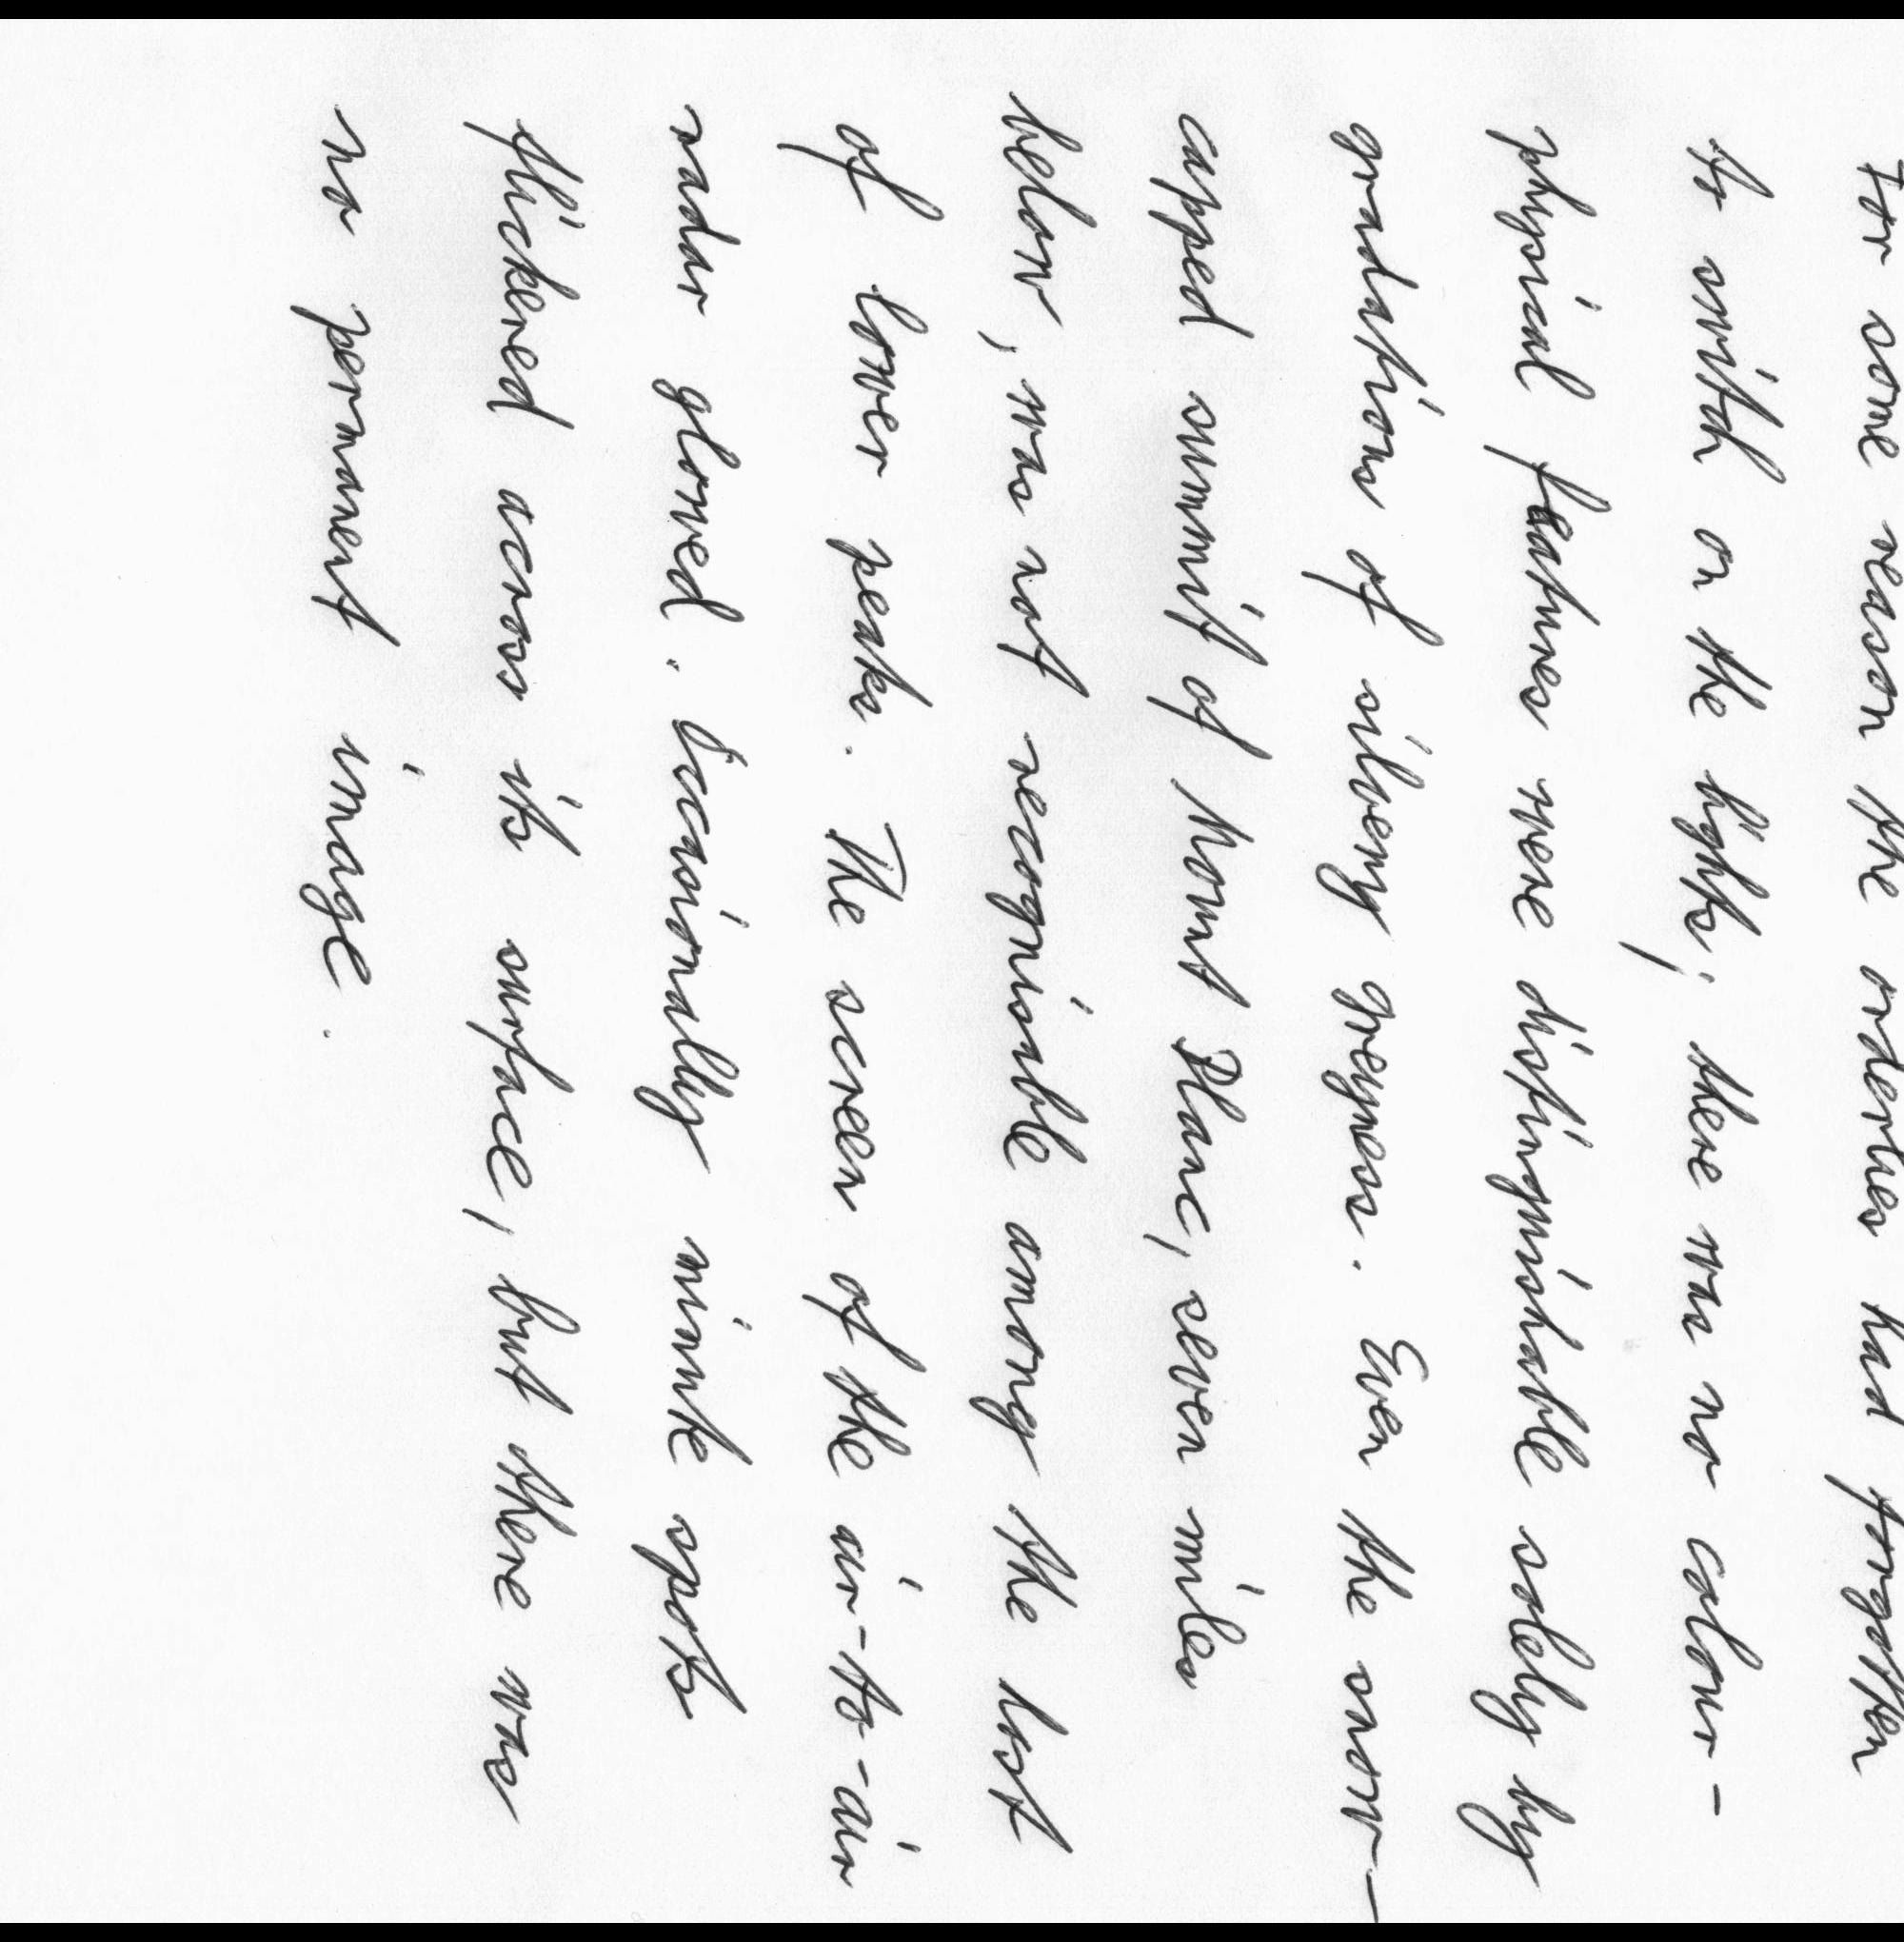 For some reason the orderlies had forgotten
to switch on the lights; there was no colour -
physical features were distinguishable solely by
gradations of silvery greyness. Even the snow-
capped summit of Mount Planc, seven miles
below, was not recognisable among the host
of lower peaks. The screen of the air-to-air
radar glowed. Occasionally minute spots
flickered across its surface, but there was
no permanent image.